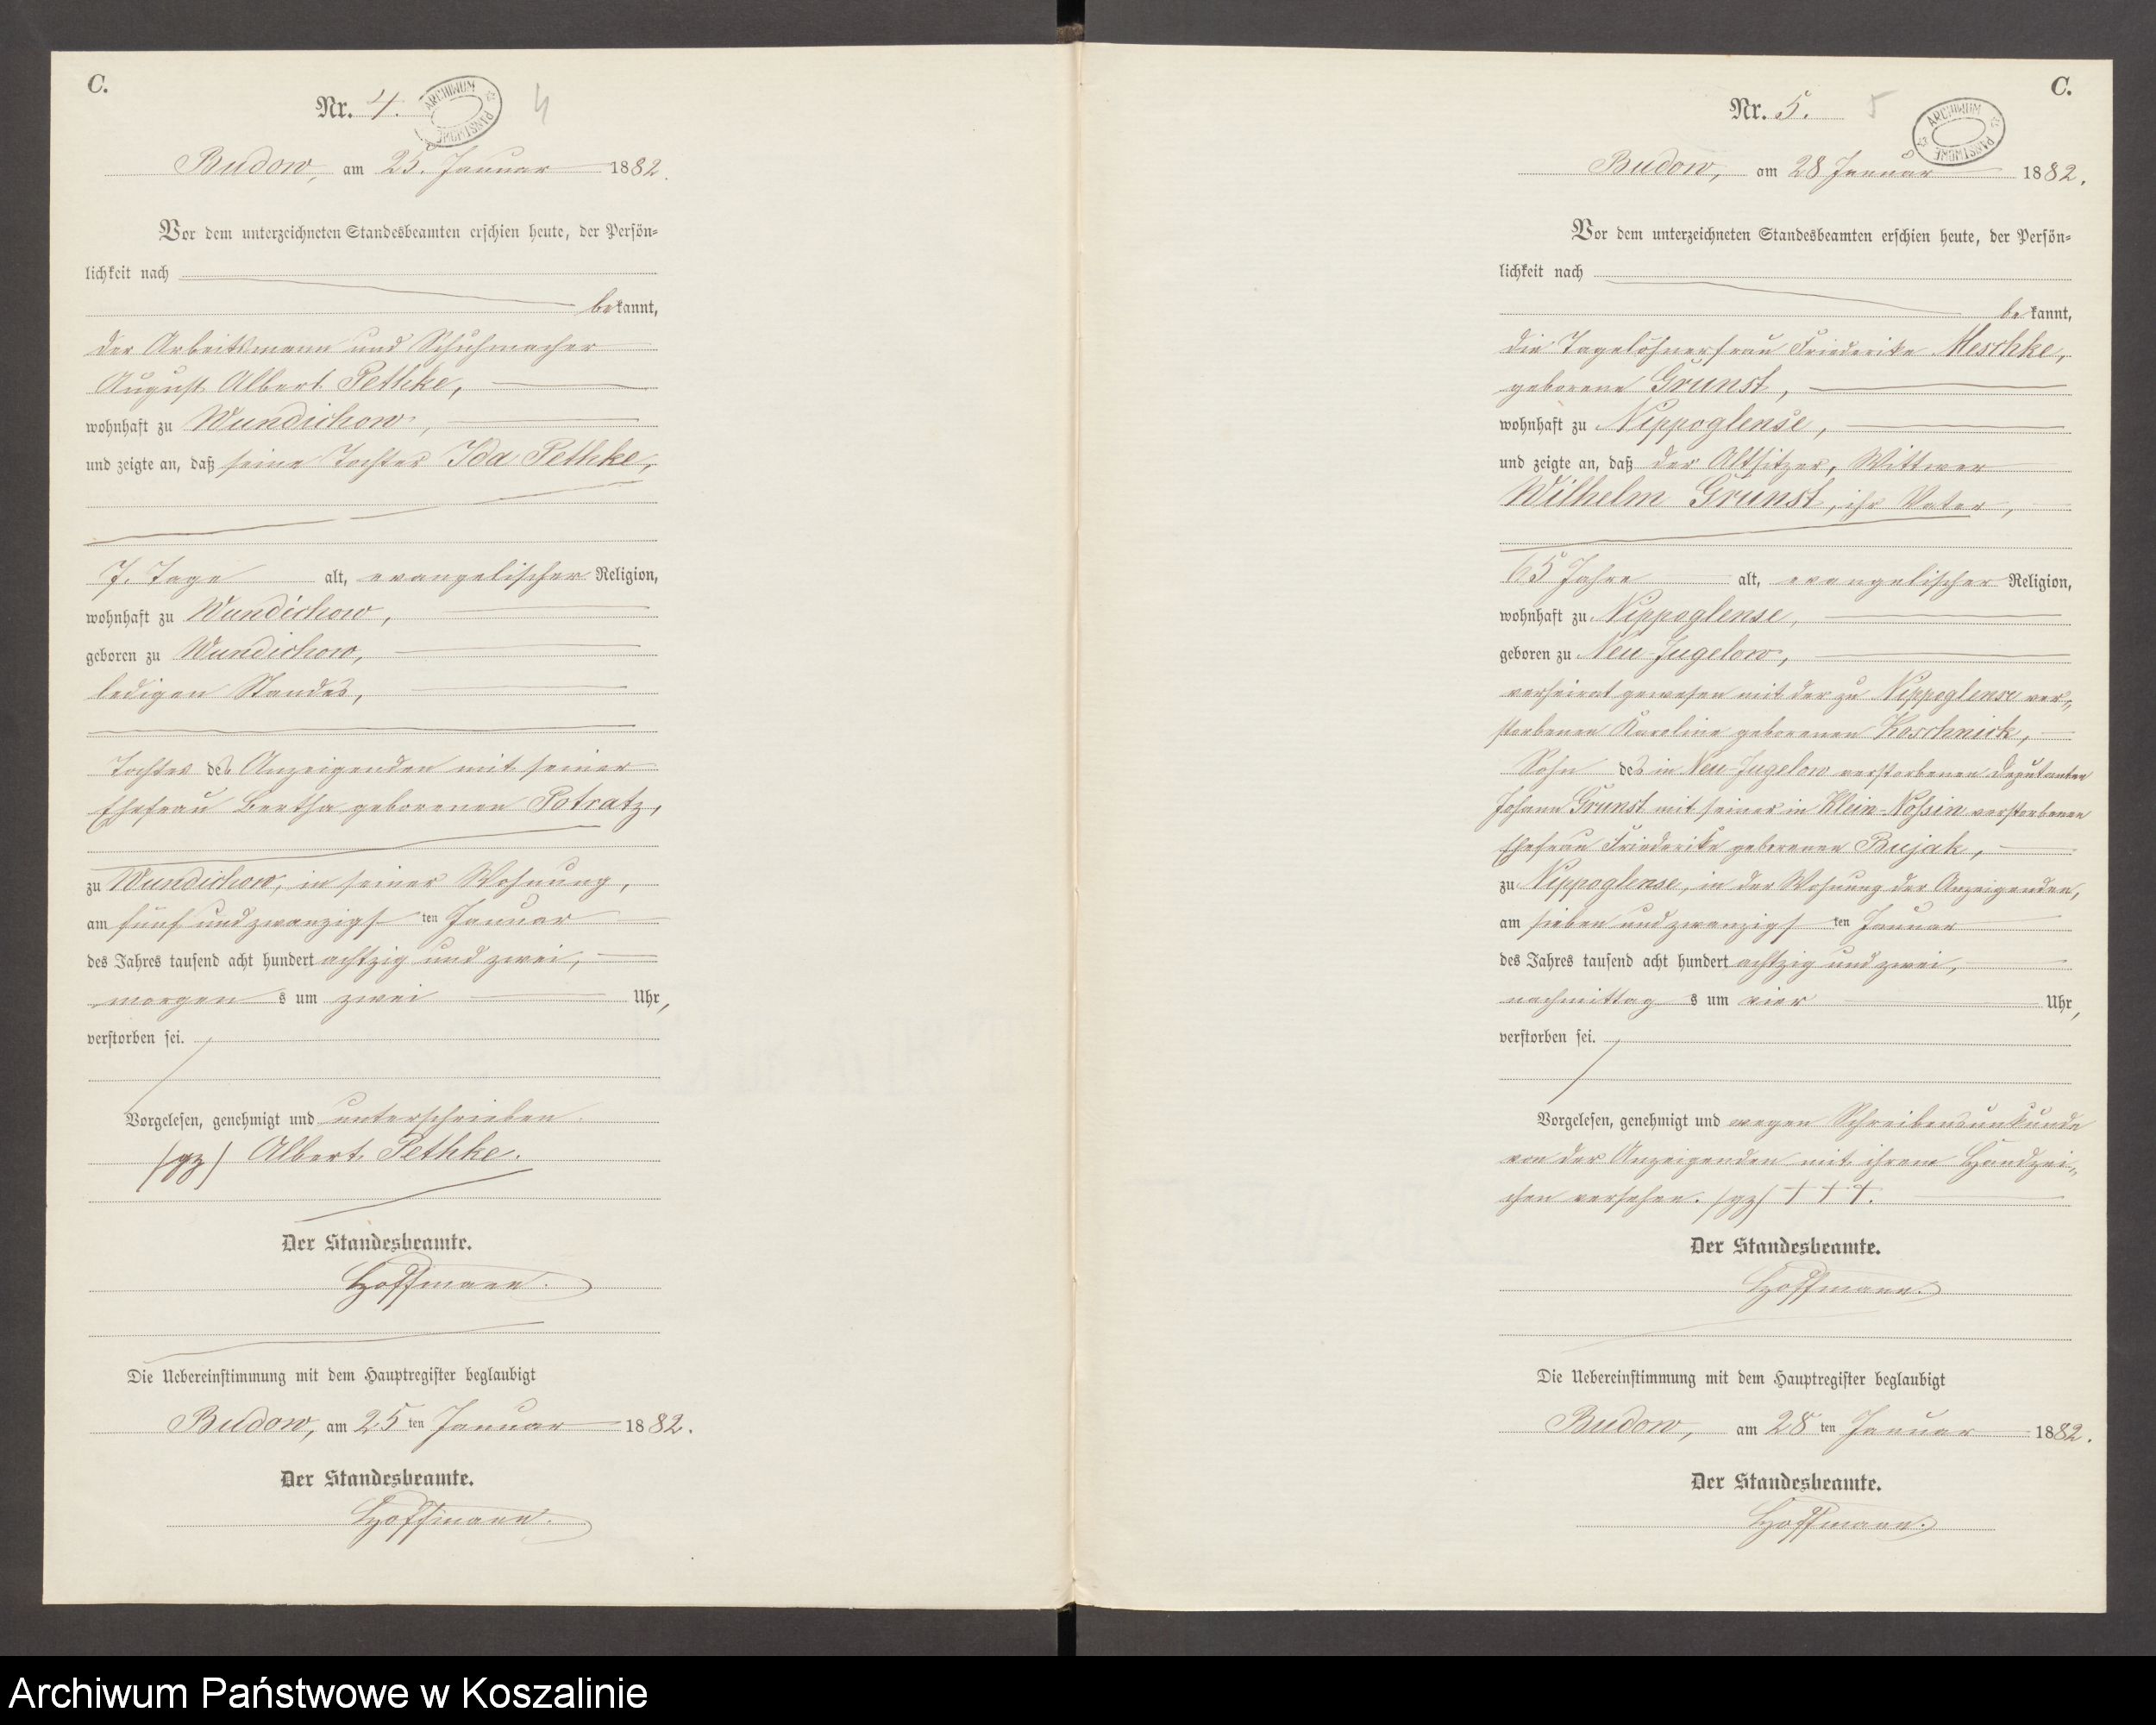 C.
Nr. 4.
ARCHIWUM PAŃSTWOWE
4
Budow, am 25. Januar 1882.
Vor dem unterzeichneten Standesbeamten erschien heute, der Persön-
lichkeit nach
bekannt,
der Arbeitsmann und Schuhmacher
August Albert Pethke,
wohnhaft zu Wundichow,
und zeigte an, daß seine Tochter Ida Pethke,
7. Tage alt, evangelischer Religion,
wohnhaft zu Wundichow,
geboren zu Wundichow,
ledigen Standes,
Tochter des Anzeigenden mit seiner
Ehefrau Bertha geborenen Potratz,
zu Wundichow, in seiner Wohnung,
am fünf und zwanzigsten Januar
des Jahres tausend acht hundert achtzig und zwei,
morgens um zwei Uhr,
verstorben sei.
Vorgelesen, genehmigt und unterschrieben
(gz) Albert Pethke.
Der Standesbeamte.
Hoffmann.
Die Uebereinstimmung mit dem Hauptregister beglaubigt
Budow, am 25 ten Januar 1882.
Der Standesbeamte.
Hoffmann.
C.
Nr. 5.
5
ARCHIWUM PAŃSTWOWE
Budow, am 28 Januar 1882.
Vor dem unterzeichneten Standesbeamten erschien heute, der Persön-
lichkeit nach
bekannt,
die Tagelöhnerfrau Friederike Meschke,
geborene Grunst,
wohnhaft zu Nippoglense,
und zeigte an, daß der Altsitzer, Wittwer
Wilhelm Grunst, ihr Vater,
65 Jahre alt, evangelischer Religion,
wohnhaft zu Nippoglense,
geboren zu Neu-Jugelow,
verheirat gewesen mit der zu Nippoglense ver-
storbenen Karoline geborenen Koschnick,
Sohn des in Neu-Jugelow verstorbenen Deputanten
Johann Grunst mit seiner in Klein-Nossin verstorbenen
Ehefrau Friederike geborenen Bujak,
zu Nippoglense, in der Wohnung der Anzeigenden,
am sieben und zwanzigsten Januar
des Jahres tausend acht hundert achtzig und zwei,
nachmittags um vier Uhr,
verstorben sei.
Vorgelesen, genehmigt und wegen Schreibensunkunde
von der Anzeigenden mit ihrem Handzei-
chen versehen. (gz) + + +.
Der Standesbeamte.
Hoffmann.
Die Uebereinstimmung mit dem Hauptregister beglaubigt
Budow, am 28 ten Januar 1882.
Der Standesbeamte.
Hoffmann.
Archiwum Państwowe w Koszalinie